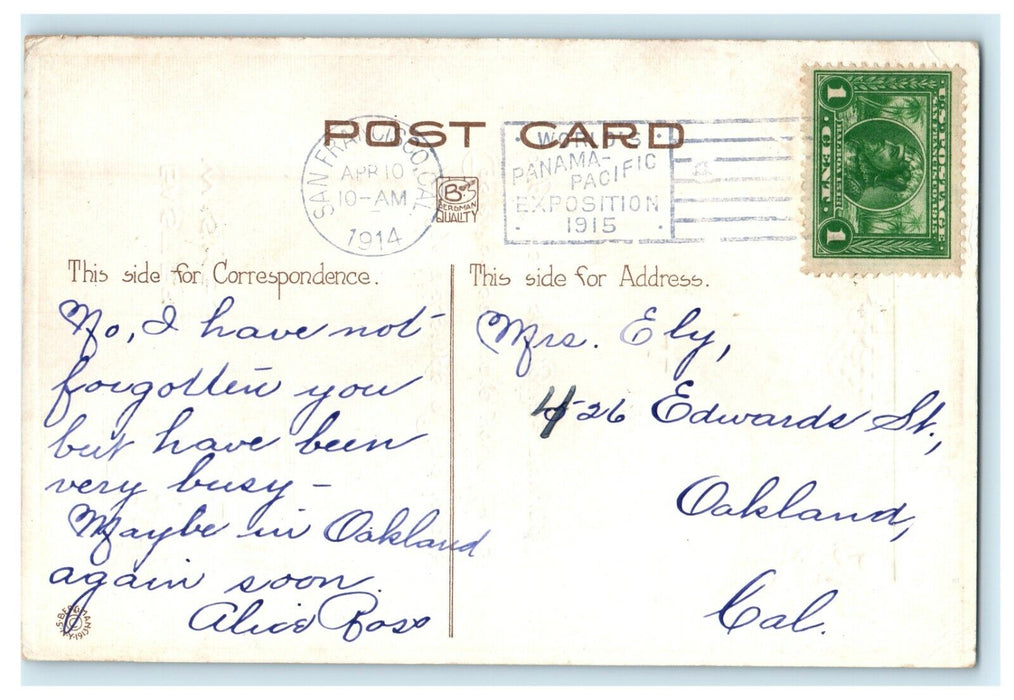 POST CARD
SAN FRANCISCO, CAL.
APR 10
10-AM
1914
WORLD'S
PANAMA-
PACIFIC
EXPOSITION
1915
B.S
BERGMAN
QUALITY
U.S. POSTAGE
SAN FRANCISCO 1915
1 CENT 1
This side for Correspondence.
No, I have not
forgotten you
but have been
very busy –
Maybe in Oakland
again soon.
Alice Ross
S. BERGMAN
N.Y. 1913
©
This side for Address.
Mrs. Ely,
426 Edwards St.,
Oakland,
Cal.